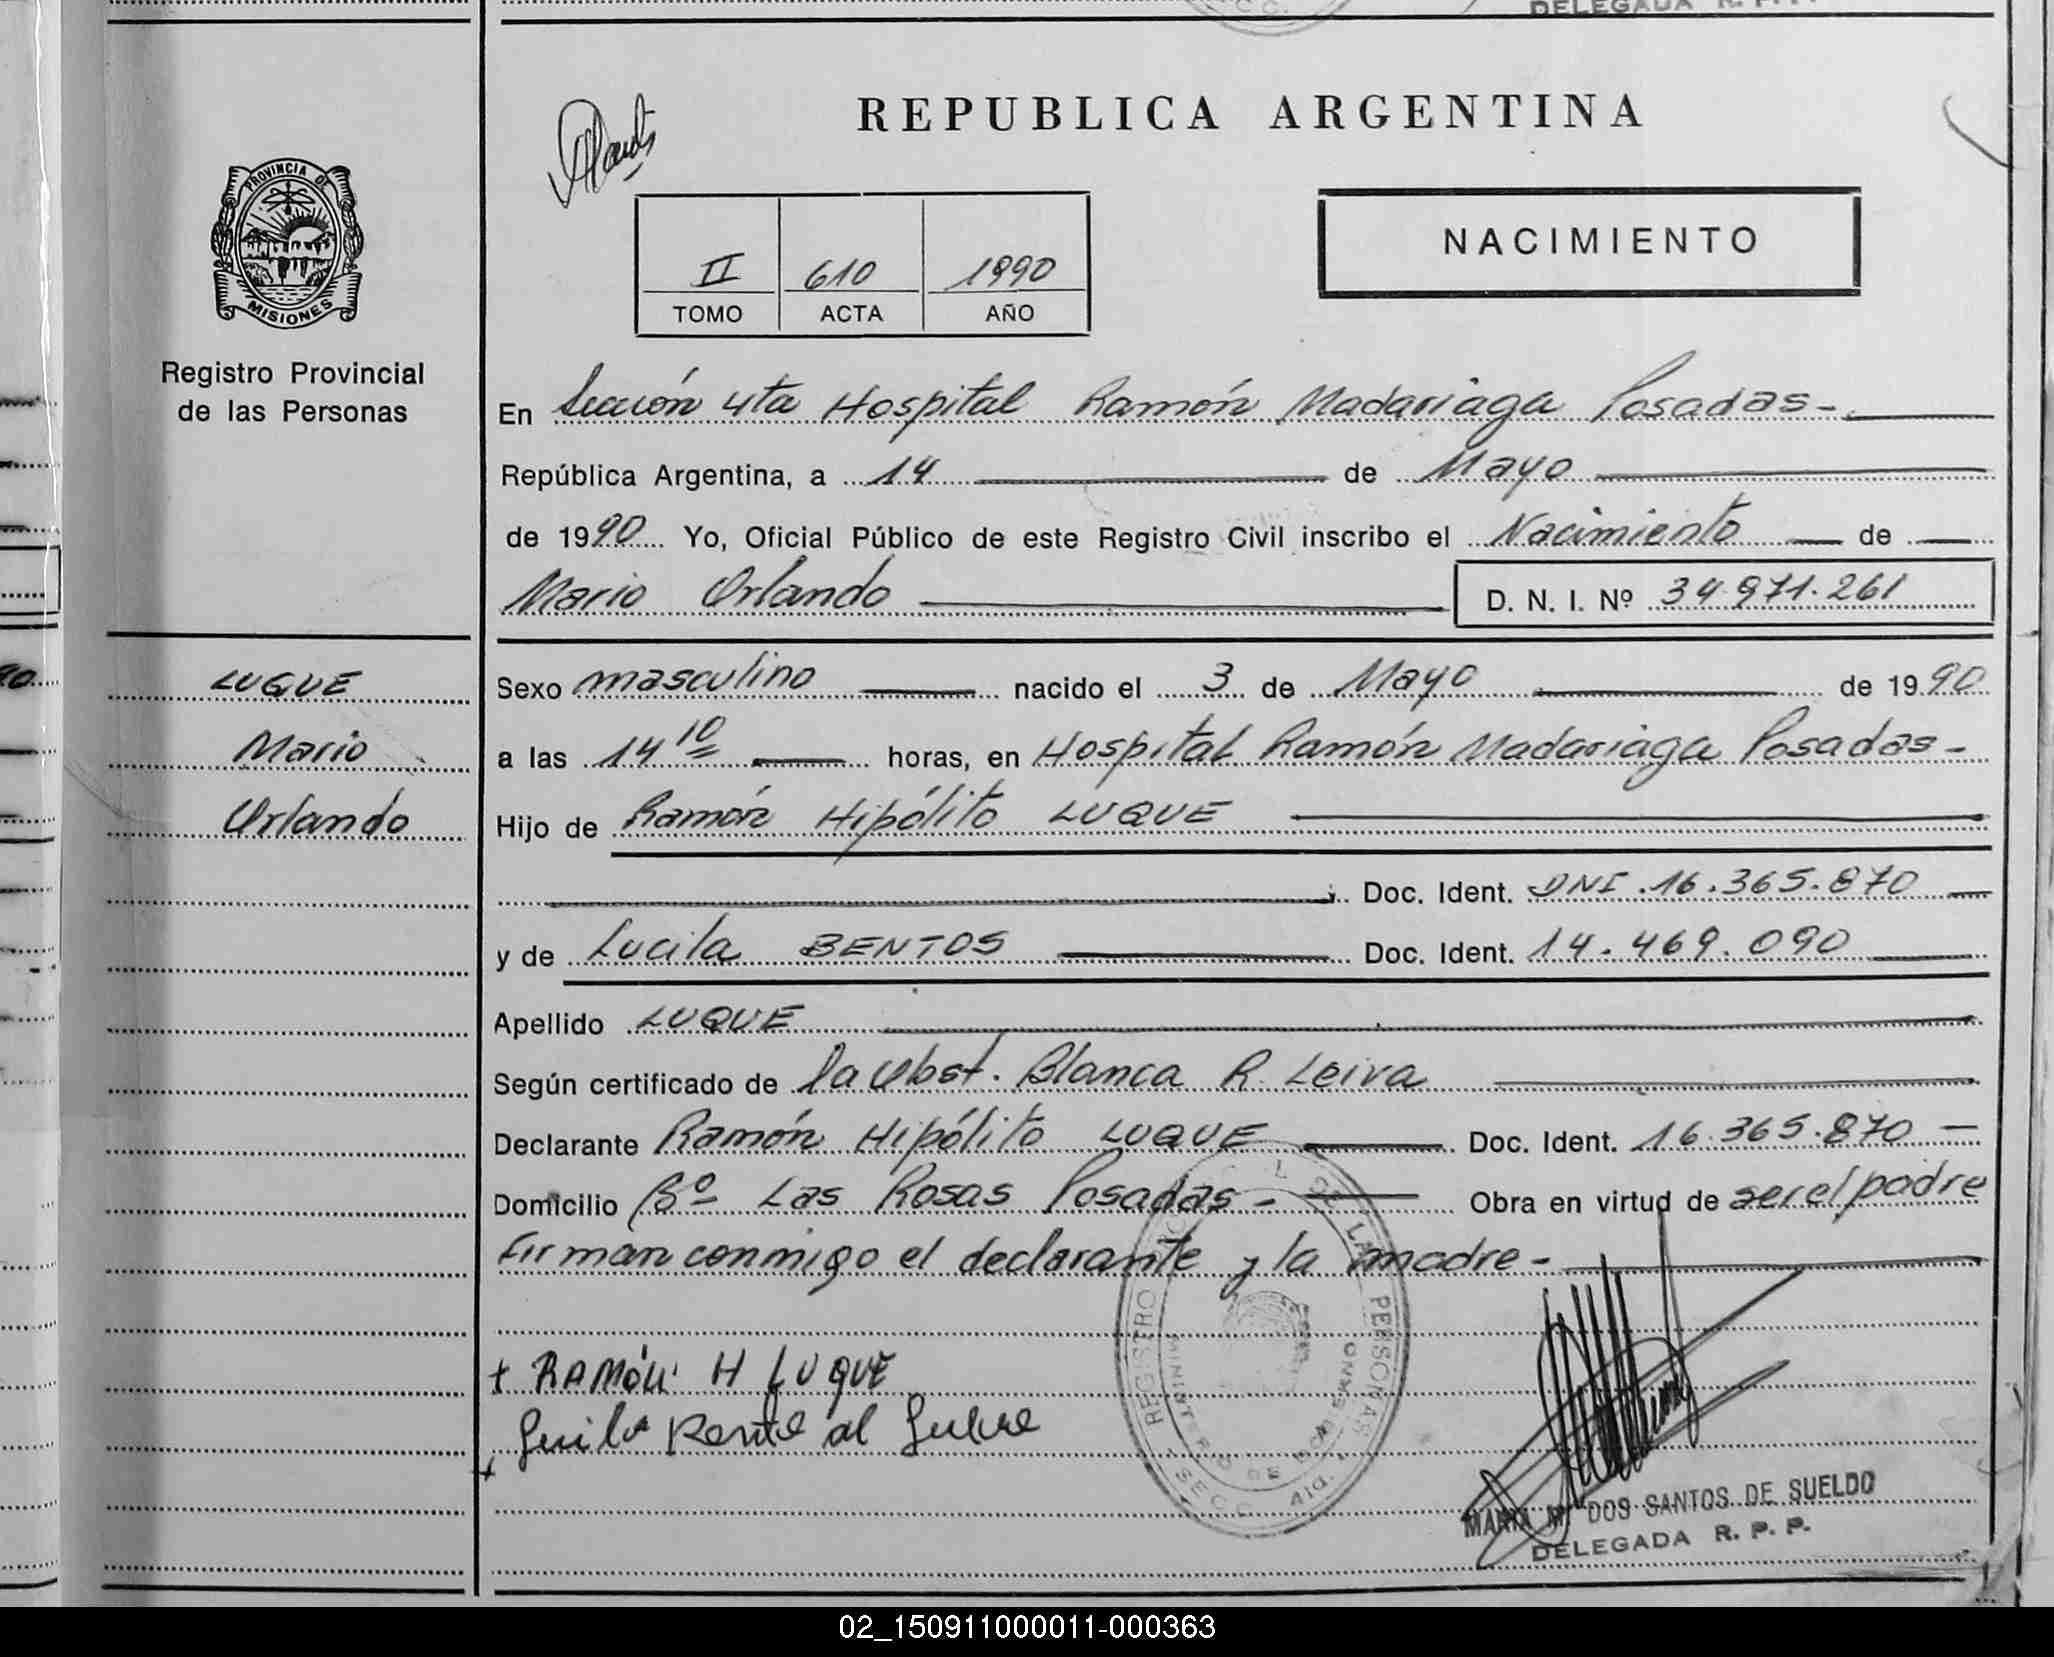 DELEGADA R. P. P.
REPUBLICA ARGENTINA
PROVINCIA DE
MISIONES
NACIMIENTO
II 610 1990
TOMO ACTA AÑO
Registro Provincial
de las Personas
En Sección 4ta Hospital Ramón Madariaga Posadas-
República Argentina, a 14 de Mayo
de 1990 Yo, Oficial Público de este Registro Civil inscribo el Nacimiento de
Mario Orlando D. N. I. Nº 34.971.261
LUQUE
Mario
Orlando
Sexo masculino nacido el 3 de Mayo de 1990
a las 14 10 horas, en Hospital Ramón Madariaga Posadas-
Hijo de Ramón Hipólito LUQUE
Doc. Ident. DNI.16.365.870
y de Lucila BENTOS Doc. Ident. 14.469.090
Apellido LUQUE
Según certificado de la Obst. Blanca R. Leiva
Declarante Ramón Hipólito LUQUE Doc. Ident. 16.365.870
Domicilio Bº Las Rosas Posadas- Obra en virtud de ser el padre
Firman conmigo el declarante y la madre-
+ RAMÓN H LUQUE
REGISTRO DE LAS PERSONAS
MINISTERIO DE GOBIERNO
SECC. 4ta.
MARIA M. DOS SANTOS DE SUELDO
DELEGADA R. P. P.
02_150911000011-000363